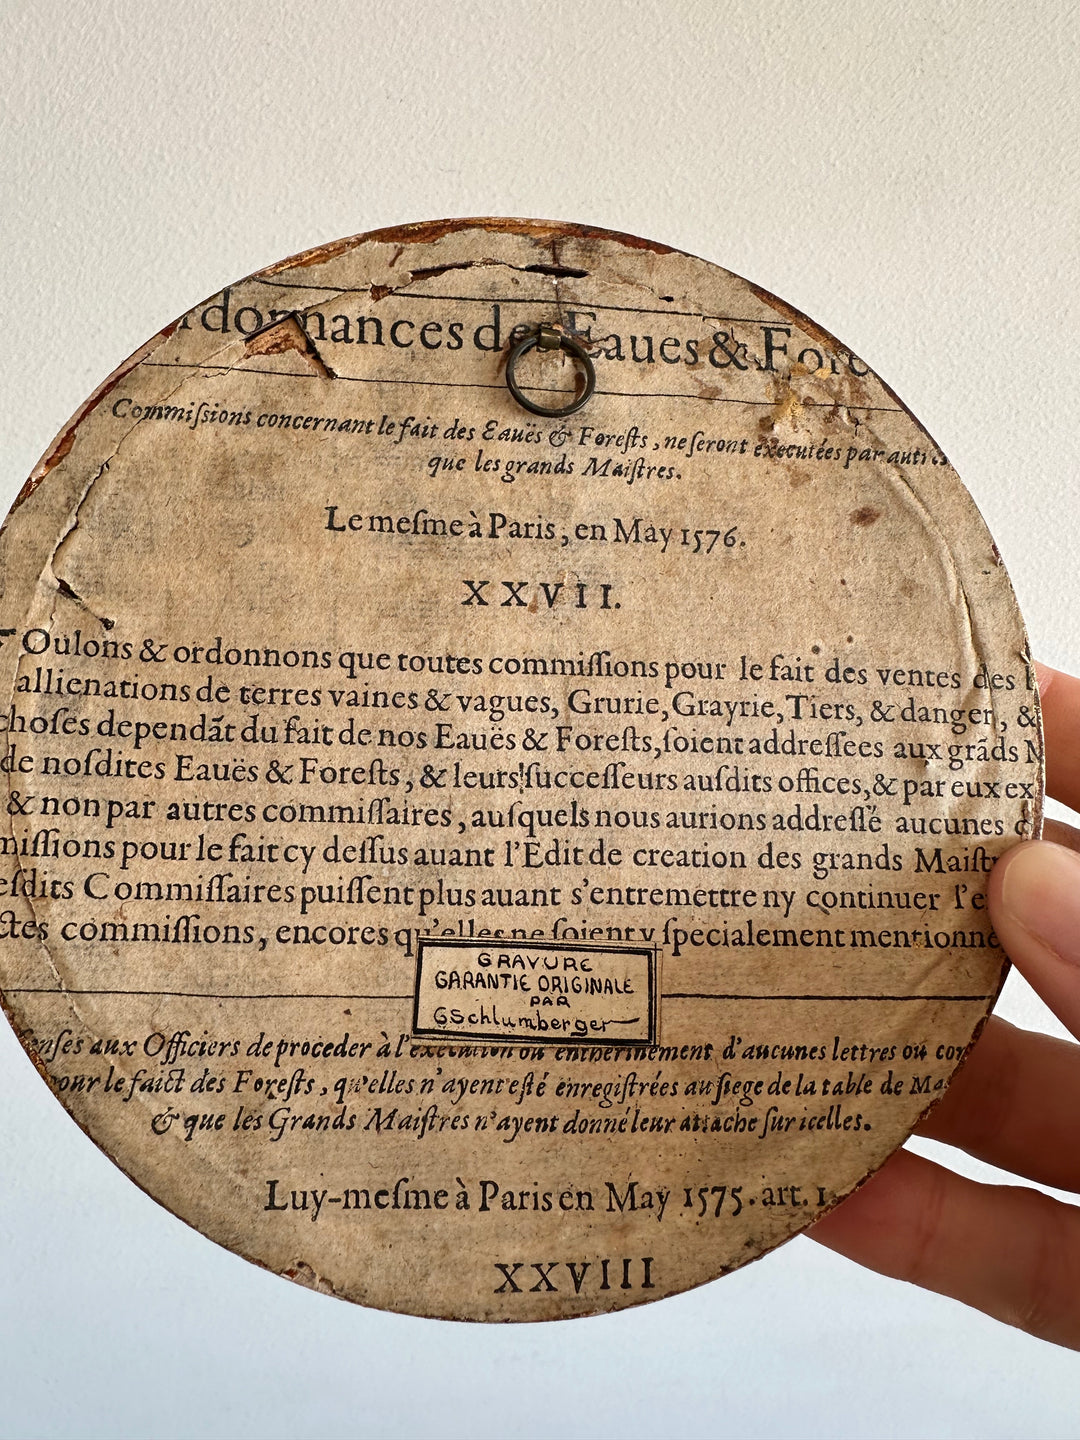 rdonnances des Eaues & Fore
Commiſsions concernant le fait des Eauës & Foreſts, ne ſeront executées par autres
que les grands Maiſtres.
Le meſme à Paris, en May 1576.
XXVII.
Oulons & ordonnons que toutes commiſſions pour le fait des ventes des
allienations de terres vaines & vagues, Grurie, Grayrie, Tiers, & danger, &
choſes dependãt du fait de nos Eauës & Foreſts, ſoient addreſſees aux grãds M
de noſdites Eauës & Foreſts, & leurs ſucceſſeurs auſdits offices, & par eux ex
& non par autres commiſſaires, auſquels nous aurions addreſſé aucunes
miſſions pour le fait cy deſſus auant l'Edit de creation des grands Maiſt
eſdits Commiſſaires puiſſent plus auant s'entremettre ny continuer l'e
ctes commiſſions, encores qu'elles ne ſoient y ſpecialement mentionne
GRAVURE
GARANTIE ORIGINALE
PAR
GSchlumberger
enſes aux Officiers de proceder à l'execution ou entherinement d'aucunes lettres ou com
pour le faict des Foreſts, qu'elles n'ayent eſté enregiſtrées au ſiege de la table de Ma
& que les Grands Maiſtres n'ayent donné leur attache ſur icelles.
Luy-meſme à Paris en May 1575. art. 1.
XXVIII